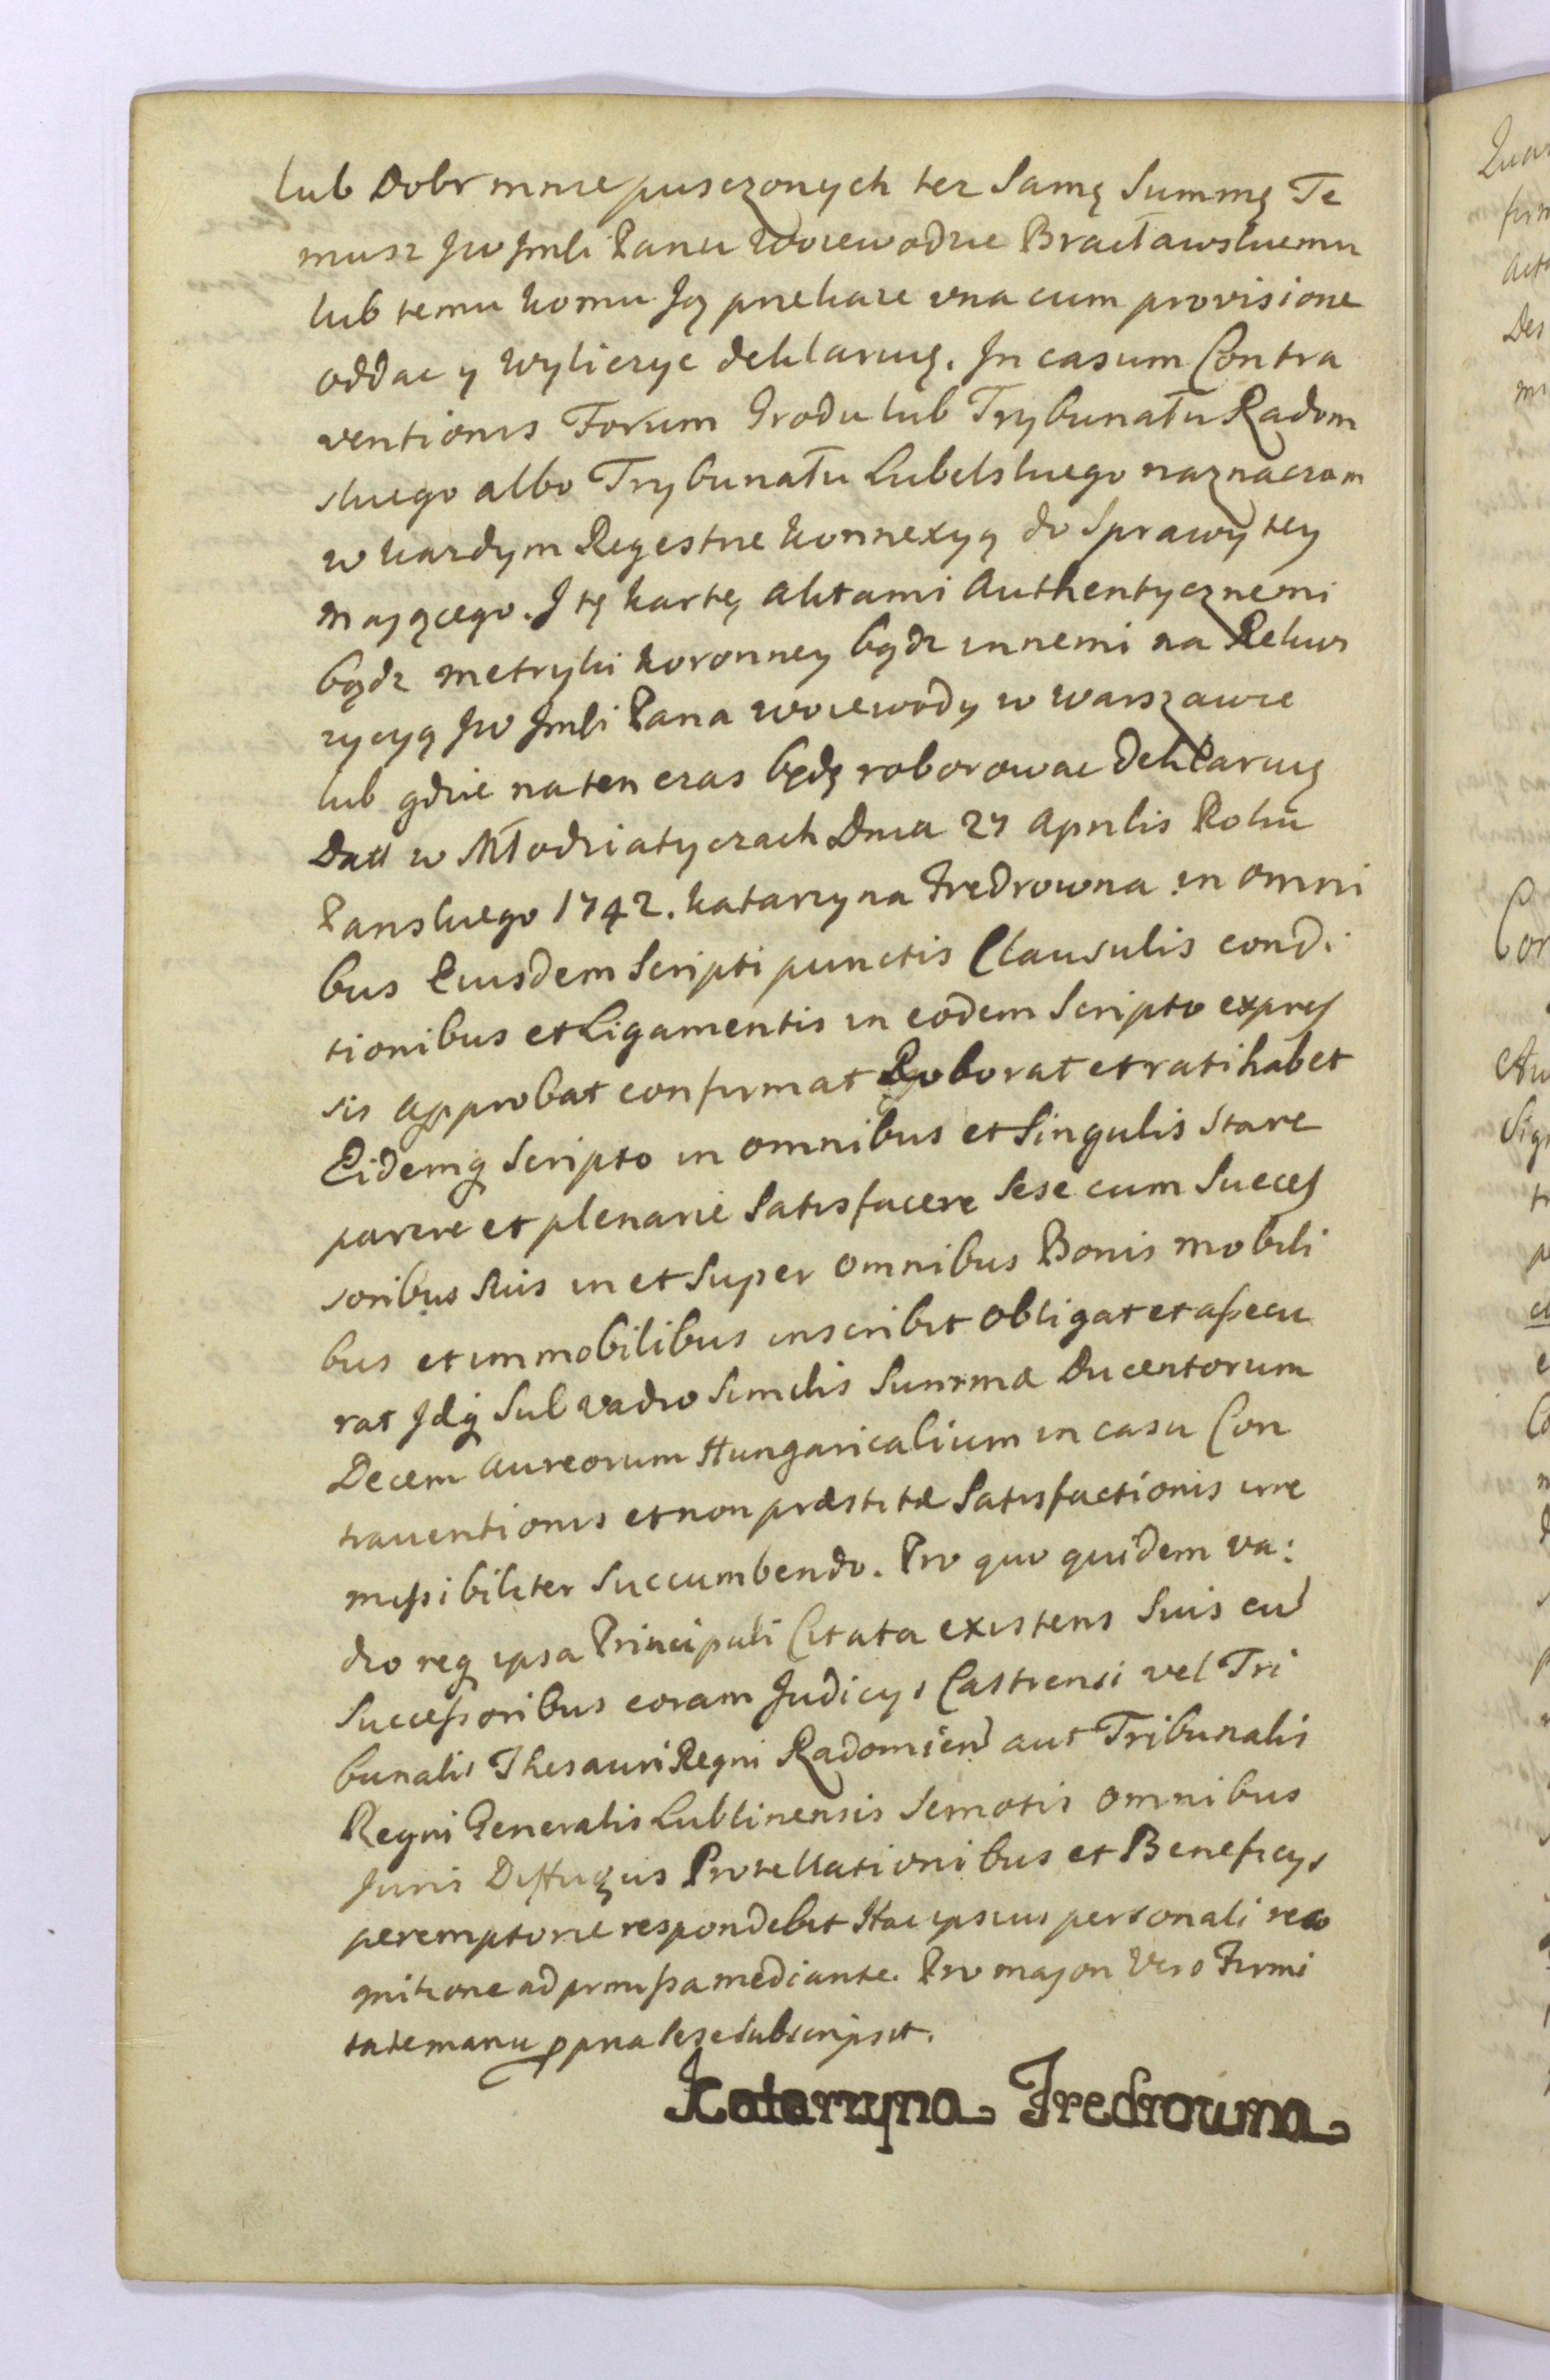 lub Dobr mnie pusczonych tez Samę Summę Te
musz Jw Jmli Panu Woiewodzie Bracławskiemu
lub temu komu Ją przekaze vna cum provisione
oddac y wyliczyc deklaruię. In casum Contra
ventionis Forum Grodu lub Trybunału Radom
skiego albo Trybunału Lubelskiego naznaczam
w kazdym Regestrze konnexyą do Sprawy tey
maiącego. I tę kartę aktami Authentycznemi
bądz metryki koronney bądz innemi na Rekwi
zycyą Jw Jmli Pana woiewody w Warszawie
lub gdzie na ten czas będę roborowac deklaruię
Datt w Młodziatyczach Dnia 27 Aprilis Roku
Panskiego 1742. Katarzyna Fredrowna in omni
bus Eiusdem Scripti punctis Clausulis condi
tionibus et Ligamentis in eodem Scripto expres
sis approbat confirmat Roborat et ratihabet
Eidemq Scripto in omnibus et Singulis Stare
parere et plenarie Satisfacere Sese cum Succes
soribus Suis in et Super omnibus Bonis mobili
bus et immobilibus inscribit obligat et assecu
rat Idq Sub vadio Similis Summæ Ducentorum
Decem Aureorum Hungaricalium in casu Con
traventionis et non præstitæ Satisfactionis irre
missibiliter Succumbendo. Pro quo quidem va:
dio req ipsa Principali Citata existens Suis cu
Successoribus coram Judicys Castrensi vel Tri
bunalis Thesauri Regni Radomien aut Tribunalis
Regni Generalis Lublinensis Semotis omnibus
Juris Diffugiis Protellationibus et Beneficys
peremptorie respondebit Hac ipsius personali reco
gnitione ad prmissa mediante. Pro majori Vero Firmi
tate manu ppria Sese Subscripsit.
Katarzyna Fredrowna